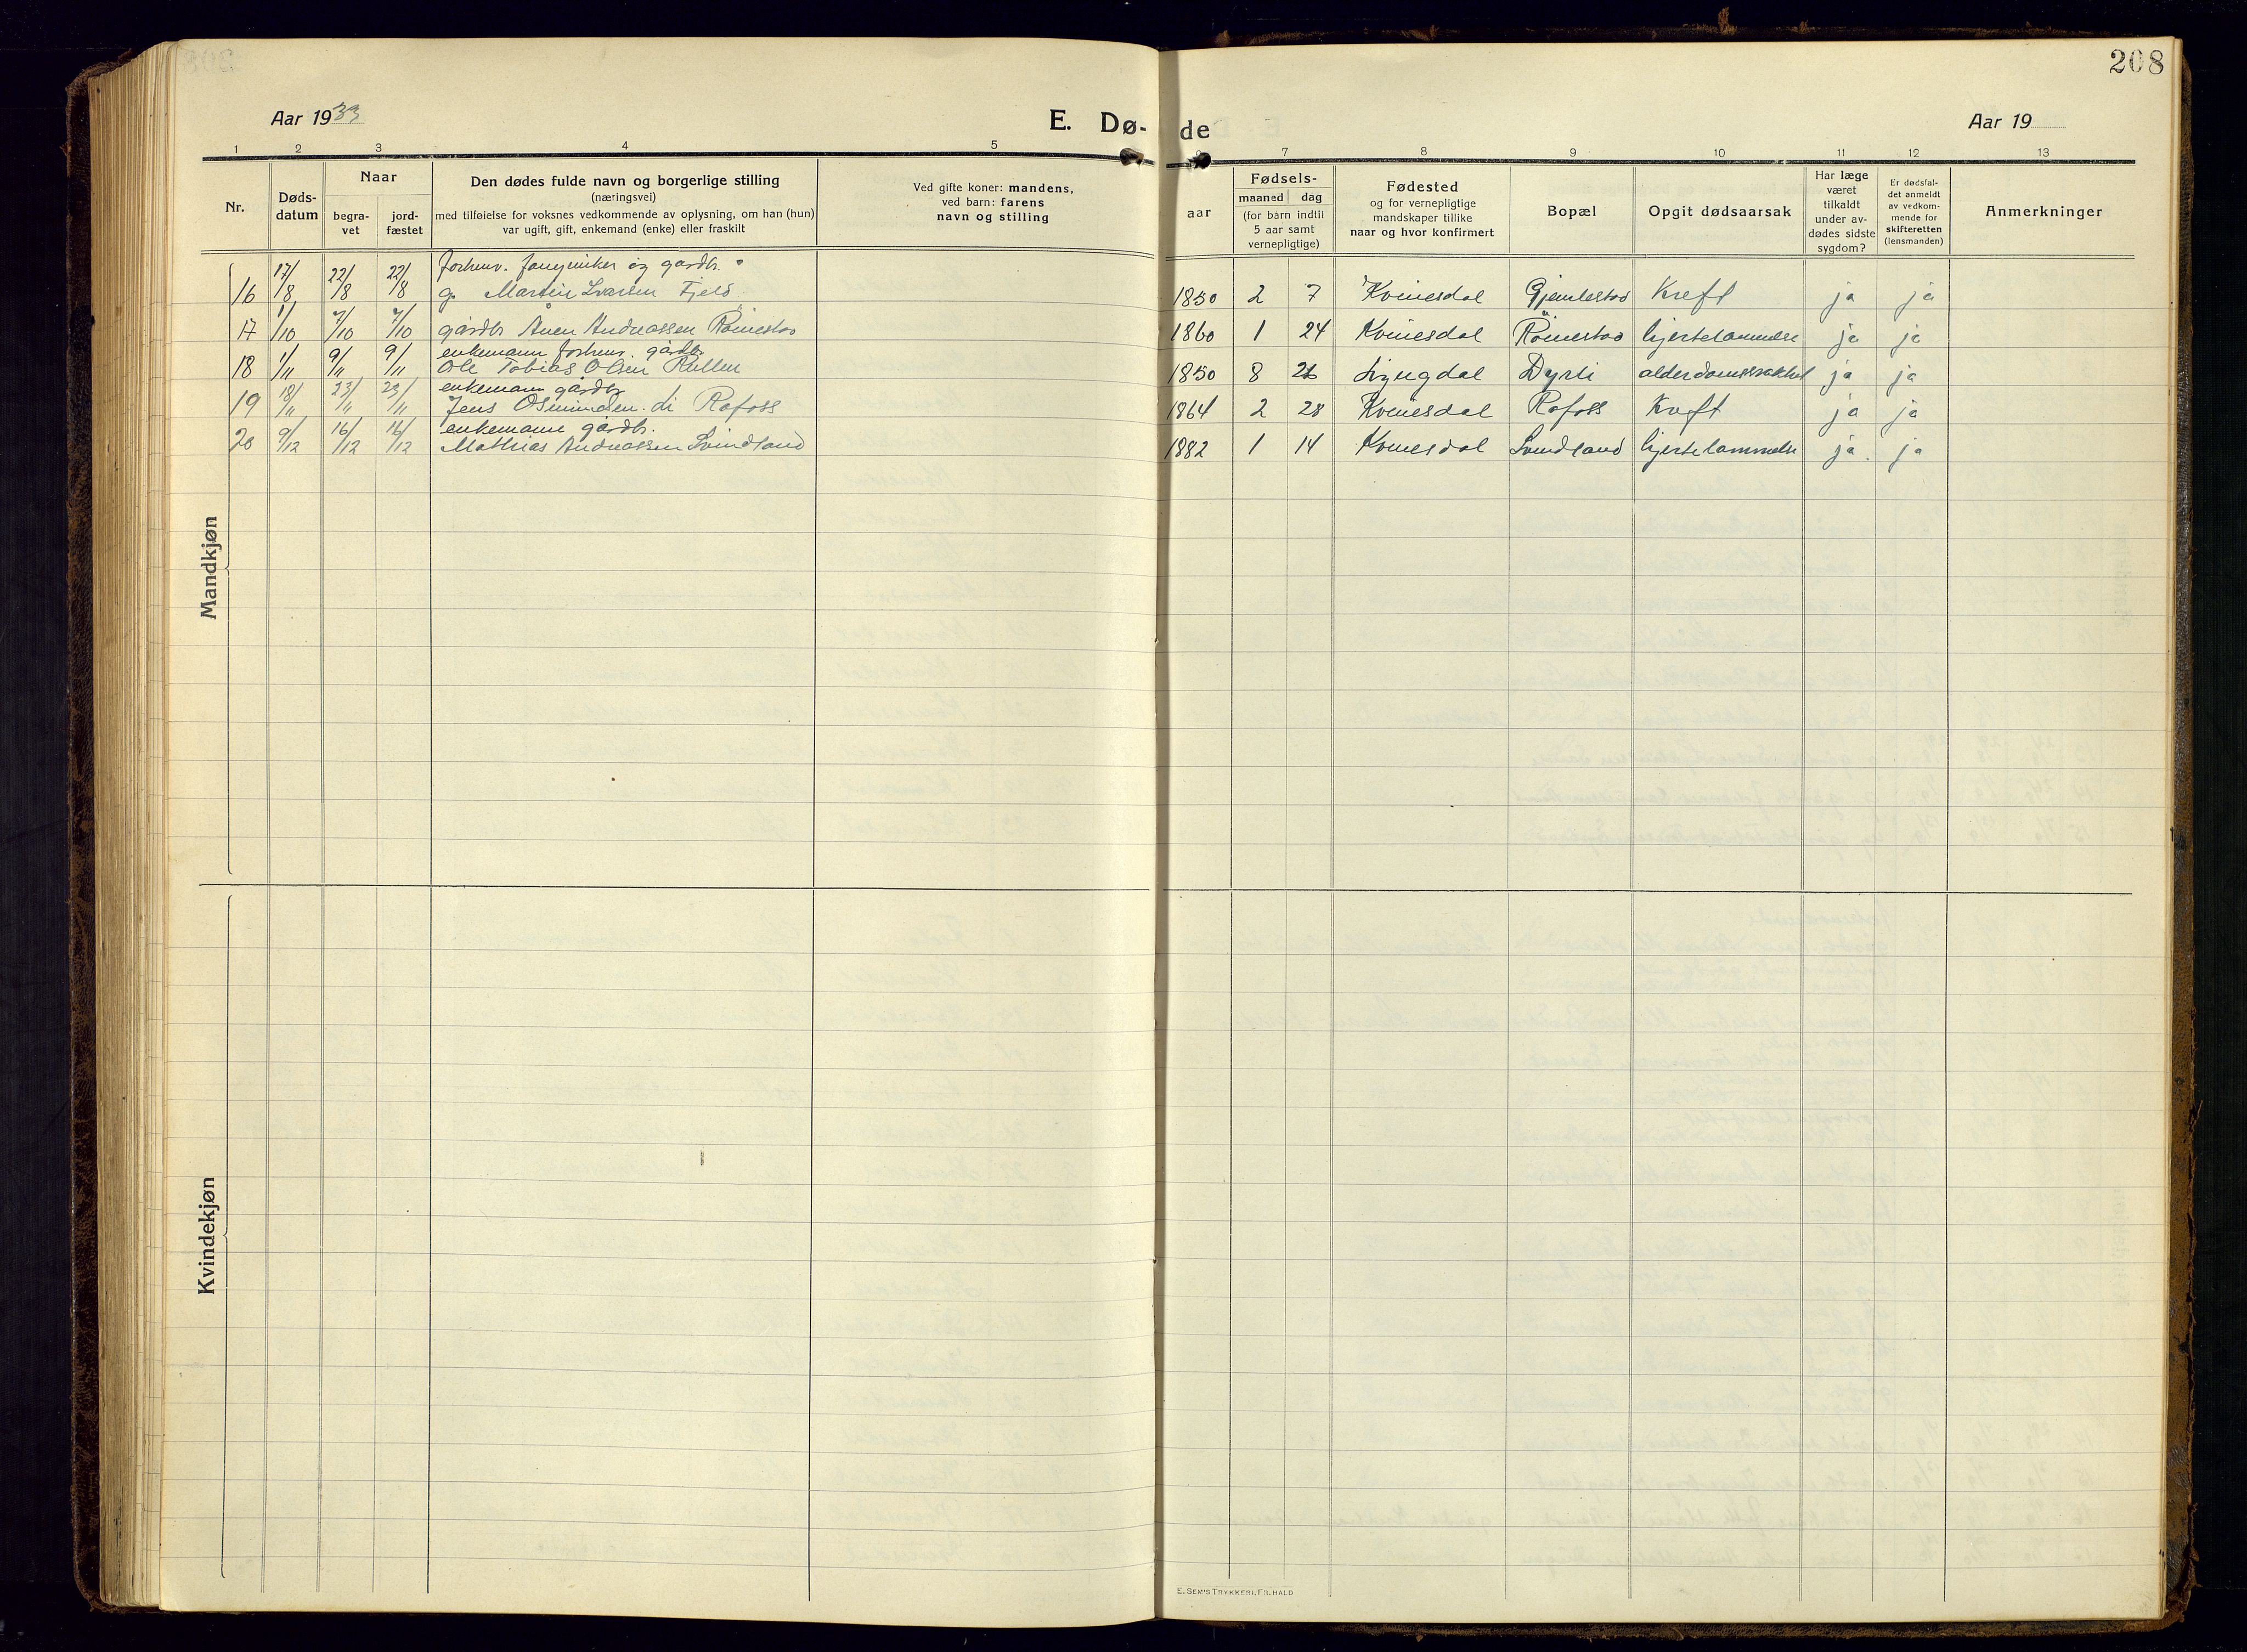 208
Aar 1933
E. Dø-
de
Aar 19
1 2 3 4 5 7 8 9 10 11 12 13
Nr.
Døds-
datum
Naar
begra-
vet
jord-
fæstet
Den dødes fulde navn og borgerlige stilling
(næringsvei)
med tilføielse for voksnes vedkommende av oplysning, om han (hun)
var ugift, gift, enkemand (enke) eller fraskilt
Ved gifte koner: mandens,
ved barn: farens
navn og stilling
aar
Fødsels-
maaned dag
(for barn indtil
5 aar samt
vernepligtige)
Fødested
og for vernepligtige
mandskaper tillike
naar og hvor konfirmert
Bopæl
Opgit dødsaarsak
Har læge
været
tilkaldt
under av-
dødes sidste
sygdom?
Er dødsfal-
det anmeldt
av vedkom-
mende for
skifteretten
(lensmanden)
Anmerkninger
forhenv. og gårdb.
16 17/8 22/8 22/8 g. Martin Fjeld 1850 2 7 Kvinesdal Gjemlestad Kreft ja ja
17 1/10 7/10 7/10 gårdb. Ånen Andreassen Röinestad 1860 1 24 Kvinesdal Röinestad hjertelammelse ja ja
enkemann forhenv. gårdb.
18 1/11 9/11 9/11 Ole Tobias Olsen 1850 8 Lyngdal Dyrli alderdomssvakhet ja ja
enkemann gårdb.
19 18/11 23/11 23/11 Jens Osmundsen Rafoss 1864 2 28 Kvinesdal Rafoss Kreft ja ja
enkemann gårdb.
20 9/12 16/12 16/12 Mathias Andreassen Svindland 1882 1 14 Kvinesdal Svindland hjertelammelse ja ja
Mandkjøn
Kvindekjøn
E. SEM'S TRYKKERI, FR. HALD